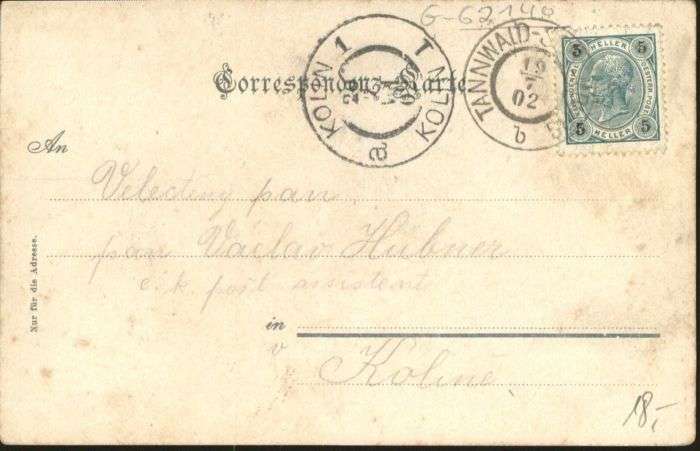 G-62140
Correspondenz-Karte.
KOLIN 1
T KOLIN
a
TANNWAID-S
19
7
02
b
5 5
HELLER
HELLER
5 5
An
Velectěný pan
pan Václav Hübner
c. k. post assistent
in
v
Kolíně
Nur für die Adresse.
18,-